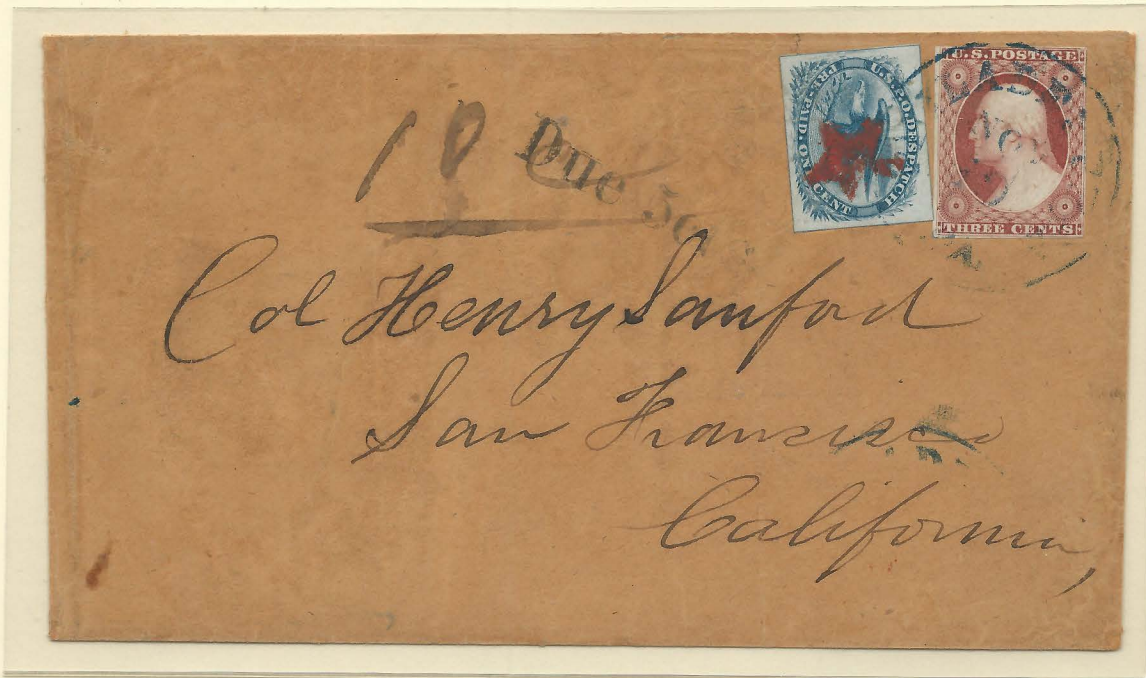 U.S.P.O. DESPATCH
PRE-PAID ONE CENT
U.S. POSTAGE
THREE CENTS
18
Due 5c
Col Henry Sanford
San Francisco
California,